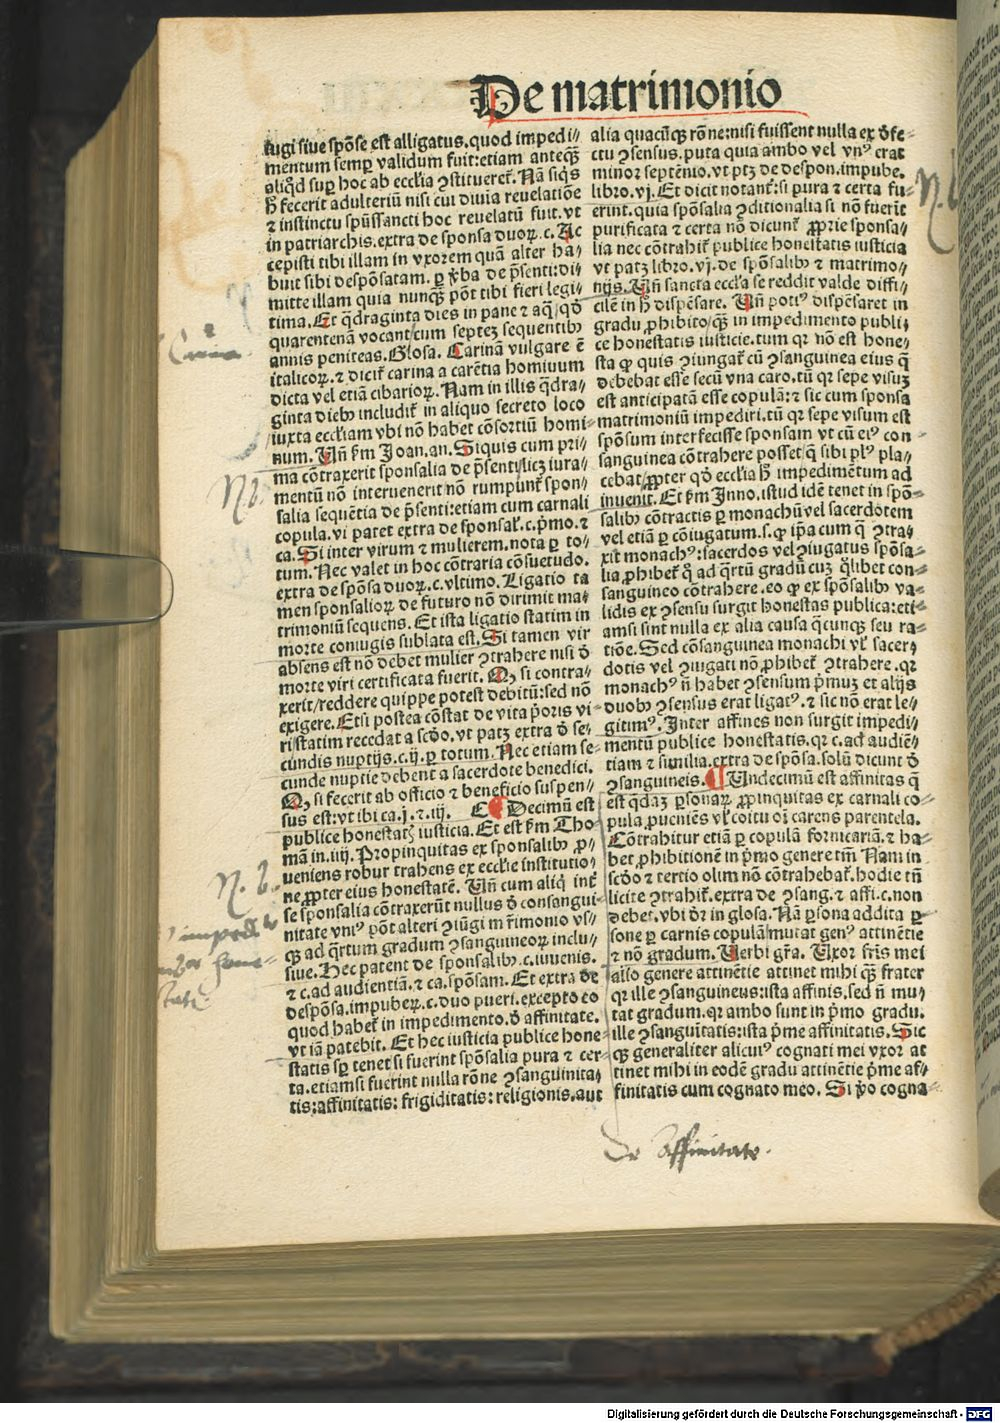 De matrimonio
iugi siue spōse est alligatus.quod impedi⸗
mentum semꝑ validum fuit:etiam anteqꝫ̄
aliqd̕ suꝑ hoc ab eccl̕ia ↄstitueret̕. Nā siqs̕
h̕ fecerit adulteriū nisi cui diuia reuelatiōe
⁊ instinctu spūssancti hoc reuelatū fuit. vt
in patriarchis.extra de sponsa duoꝝ.c. Ac
cepisti tibi illam in vxorem quā alter ha⸗
buit sibi despōsatam. ꝑ v̕ba de p̄senti:di⸗
mitte illam quia nunqꝫ̄ pōt tibi fieri legi⸗
tima. Et qd̕raginta dies in pane ⁊ aq̄/ qd̕
quarentenā vocant/cum septeꝫ sequentibꝫ
annis peniteas. Glosa. Carinā vulgare ē
italicoꝝ. ⁊ dicit̕ carina a carētia hominum
dicta vel etiā cibarioꝝ. Nam in illis qd̕ra⸗
ginta diebꝫ includit̕ in aliquo secreto loco
iuxta eccl̕iam vbi nō habet cōsortiū homi⸗
num. Vn̄ ẜm Joan.an. Siquis cum pri⸗
ma cōtraxerit sponsalia de p̄senti/licꝫ iura⸗
mentū nō interuenerit nō rumpunt̕ spon⸗
salia sequētia de p̄senti:etiam cum carnali
copula.vt patet extra de sponsal̕. c.p̄mo.⁊
ca. Si inter virum ⁊ mulierem.nota ꝑ to⸗
tum. Nec valet in hoc cōtraria cōsuetudo.
extra de spōsa duoꝝ.c.vltimo. Ligatio ta
men sponsalioꝝ de futuro nō dirimit ma⸗
trimoniū sequens. Et ista ligatio statim in
morte coniugis sublata est. Si tamen vir
absens est nō debet mulier ↄtrahere nisi d̕
morte viri certificata fuerit. Qꝫ si contra⸗
xerit/reddere quippe potest debitū:sed nō
exigere. Etsi postea cōstat de vita p̄oris vi⸗
ri/statim recedat a scd̕o. vt patꝫ extra d̕ se⸗
cundis nuptijs.c.ij.ꝑ totum. Nec etiam se⸗
cunde nuptie debent a sacerdote benedici.
Qꝫ si fecerit ab officio ⁊ beneficio suspen⸗
sus est:vt ibi ca.j.⁊.iij. C¶ Decimū est
publice honestatꝭ iusticia. Et est ẜm Tho⸗
mā in.iiij. Propinquitas ex sponsalibꝫ ꝓ⸗
ueniens robur trahens ex eccl̕ie institutio⸗
ne ꝓpter eius honestatē. Vn̄ cum aliq̄ int̕
se sponsalia cōtraxerūt nullus d̕ consangui⸗
nitate vniꝰ pōt alteri ↄiūgi m̄rimonio vs⸗
qꝫ ad qr̕tum gradum ↄsanguineoꝝ inclu⸗
siue. Hec patent de sponsalibꝫ.c.iuuenis.
⁊ c.ad audientiā.⁊ ca.spōsam. Et extra de
despōsa.impubeꝝ.c.duo pueri.excepto eo
quod habet̕ in impedimento.d̕ affinitate.
vt iā patebit. Et hec iusticia publice hone⸗
statis sꝑ tenet si fuerint spōsalia pura ⁊ cer⸗
ta.etiamsi fuerint nulla rōne ↄsanguinita⸗
tis:affinitatis:frigiditatis:religionis.aut
alia quacūqꝫ rōne:nisi fuissent nulla ex d̕fe⸗
ctu ↄsensus.puta quia ambo vel vnꝰ erat
minor septēnio.vt ptꝫ de despon.impube.
libro.vj. Et dicit notant̕:si pura ⁊ certa fu⸗
erint.quia spōsalia ↄditionalia si nō fuerīt
purificata ⁊ certa nō dicunt̕ ꝓprie sponsa⸗
lia nec cōtrahit̕ publice honestatis iusticia
vt patꝫ libro.vj.de spōsalibꝫ ⁊ matrimo⸗
nijs. Vn̄ sancta eccl̕ia se reddit valde diffi⸗
cilē in h̕ dispēsare. Vn̄ potiꝰ dispēsaret in
gradu ꝓhibito/qꝫ̄ in impedimento publi⸗
ce honestatis iusticie.tum qꝛ nō est hone⸗
sta ꝙ quis ↄiungat̕ cū ↄsanguinea eius q̄
debebat esse secū vna caro.tū qꝛ sepe visuꝫ
est anticipatā esse copulā:⁊ sic cum sponsa
matrimoniū impediri.tū qꝛ sepe visum est
spōsum interfecisse sponsam vt cū eiꝰ con⸗
sanguinea cōtrahere posset/q̄ sibi plꝰ pla⸗
cebat/ꝓpter qd̕ eccl̕ia h̕ impedimētum ad
inuenit. Et ẜm Inno.istud idē tenet in spō⸗
salibꝫ cōtractis ꝑ monachū vel sacerdotem
vel etiā ꝑ cōiugatum.s.ꝙ ip̄a cum q̄ ↄtra⸗
xit monachꝰ:sacerdos vel ↄiugatus spōsa⸗
lia/ꝓhibet̕ qͦ ad qr̕tū gradū cuꝫ ql̕ibet con⸗
sanguineo cōtrahere.eo ꝙ ex spōsalibꝫ va⸗
lidis ex ↄsensu surgit honestas publica:eti⸗
amsi sint nulla ex alia causa qͣcunqꝫ seu ra⸗
tiōe. Sed cōsanguinea monachi vl̕ sacer⸗
dotis vel ↄiugati nō ꝓhibet̕ ↄtrahere.qꝛ
monachꝰ n̄ habet ↄsensum p̄muꝫ et alijs
duobꝫ ↄsensus erat ligatꝰ.⁊ sic nō erat le⸗
gitimꝰ. Inter affines non surgit impedi⸗
mentū publice honestatis.qꝛ c.ad audiē⸗
tiam ⁊ similia.extra de spōsa.solū dicunt d̕
ↄsanguineis. ¶ Undecimū est affinitas q̄
est qd̕aꝫ ꝑsonaꝝ ꝓpinquitas ex carnali co⸗
pula ꝓueniēs vl̕ coitu oī carens parentela.
Cōtrahitur etiā ꝑ copulā fornicariā.⁊ ha⸗
bet ꝓhibitionē in p̄mo genere tm̄ Nam in
scd̕o ⁊ tertio olim nō cōtrahebat̕.hodie tn̄
licite ↄtrahit̕.extra de ↄsang.⁊ affi.c.non
debet.vbi dr̕ in glosa. Nā ꝑsona addita ꝑ⸗
sone ꝑ carnis copulā/mutat genꝰ attinētie
⁊ nō gradum. Verbi gr̄a. Uxor fris̄ mei
alio genere attinētie attinet mihi qꝫ̄ frater
qꝛ ille ↄsanguineus:ista affinis.sed n̄ mu⸗
tat gradum.qꝛ ambo sunt in p̄mo gradu.
ille ↄsanguītatis:ista p̄me affinitatis. Sic
qꝫ generaliter alicuiꝰ cognati mei vxor at
tinet mihi in eodē gradu attinētie p̄me af⸗
finitatis cum cognato meo. Si v̕o cogna⸗
N. b.
Carina.
N b.
N. b.
de Affinitate.
Digitalisierung gefördert durch die Deutsche Forschungsgemeinschaft - DFG